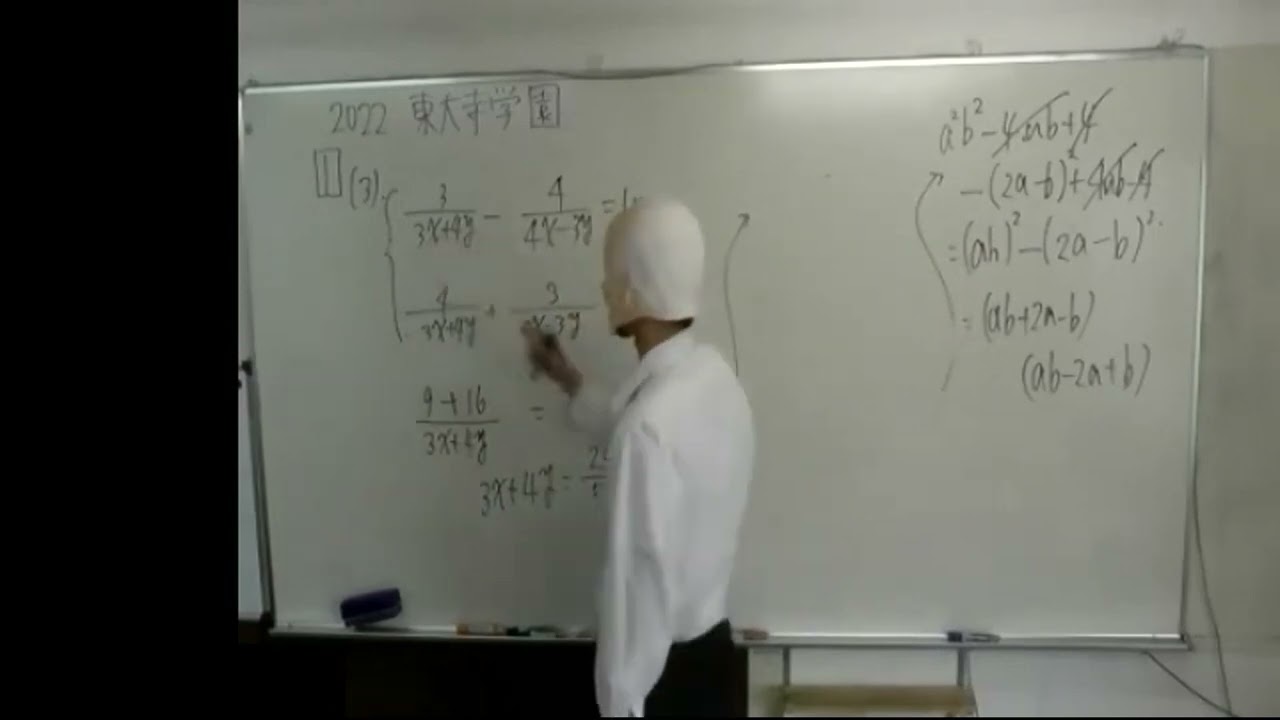 2022 東大寺学園
1 (3)
3/(3x+4y) - 4/(4x-3y) =
4/(3x+4y) + 3/(4x-3y)
(9+16)/(3x+4y) =
3x+4y =
a²b² - 4ab + 4
-(2a-b)² + 4ab - 4
= (ab)² - (2a-b)²
= (ab+2a-b)
(ab-2a+b)